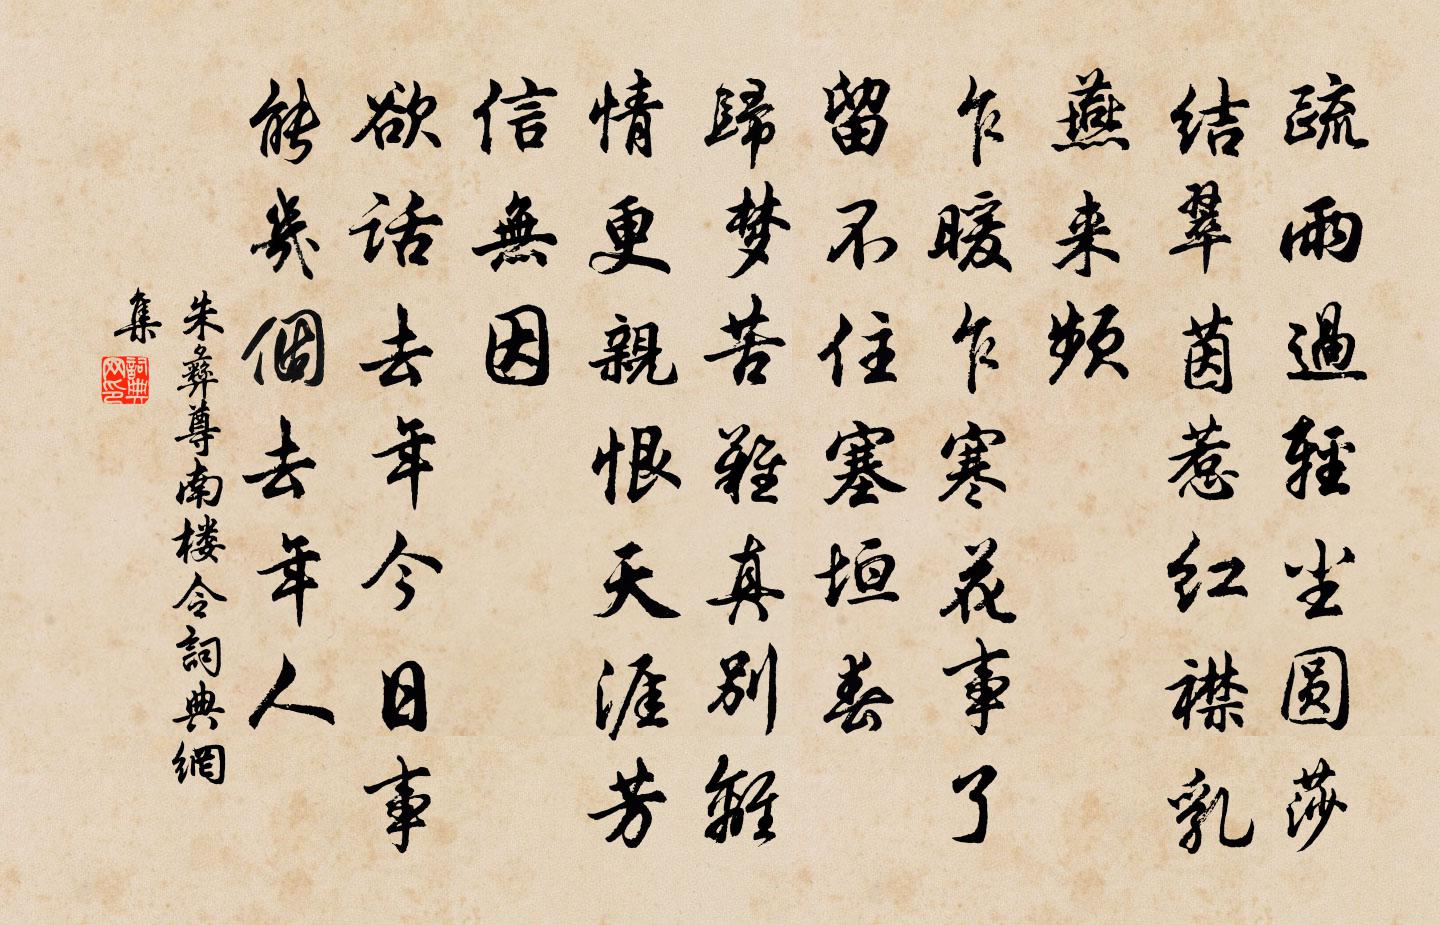 疏雨過輕尘圆莎
结翠茵惹红襟乳
燕来频
乍暖乍寒花事了
留不住塞垣春
歸梦苦難真別離
情更親恨天涯芳
信無因
欲话去年今日事
能幾個去年人
朱彝尊南楼令詞典網
集
詞典网印